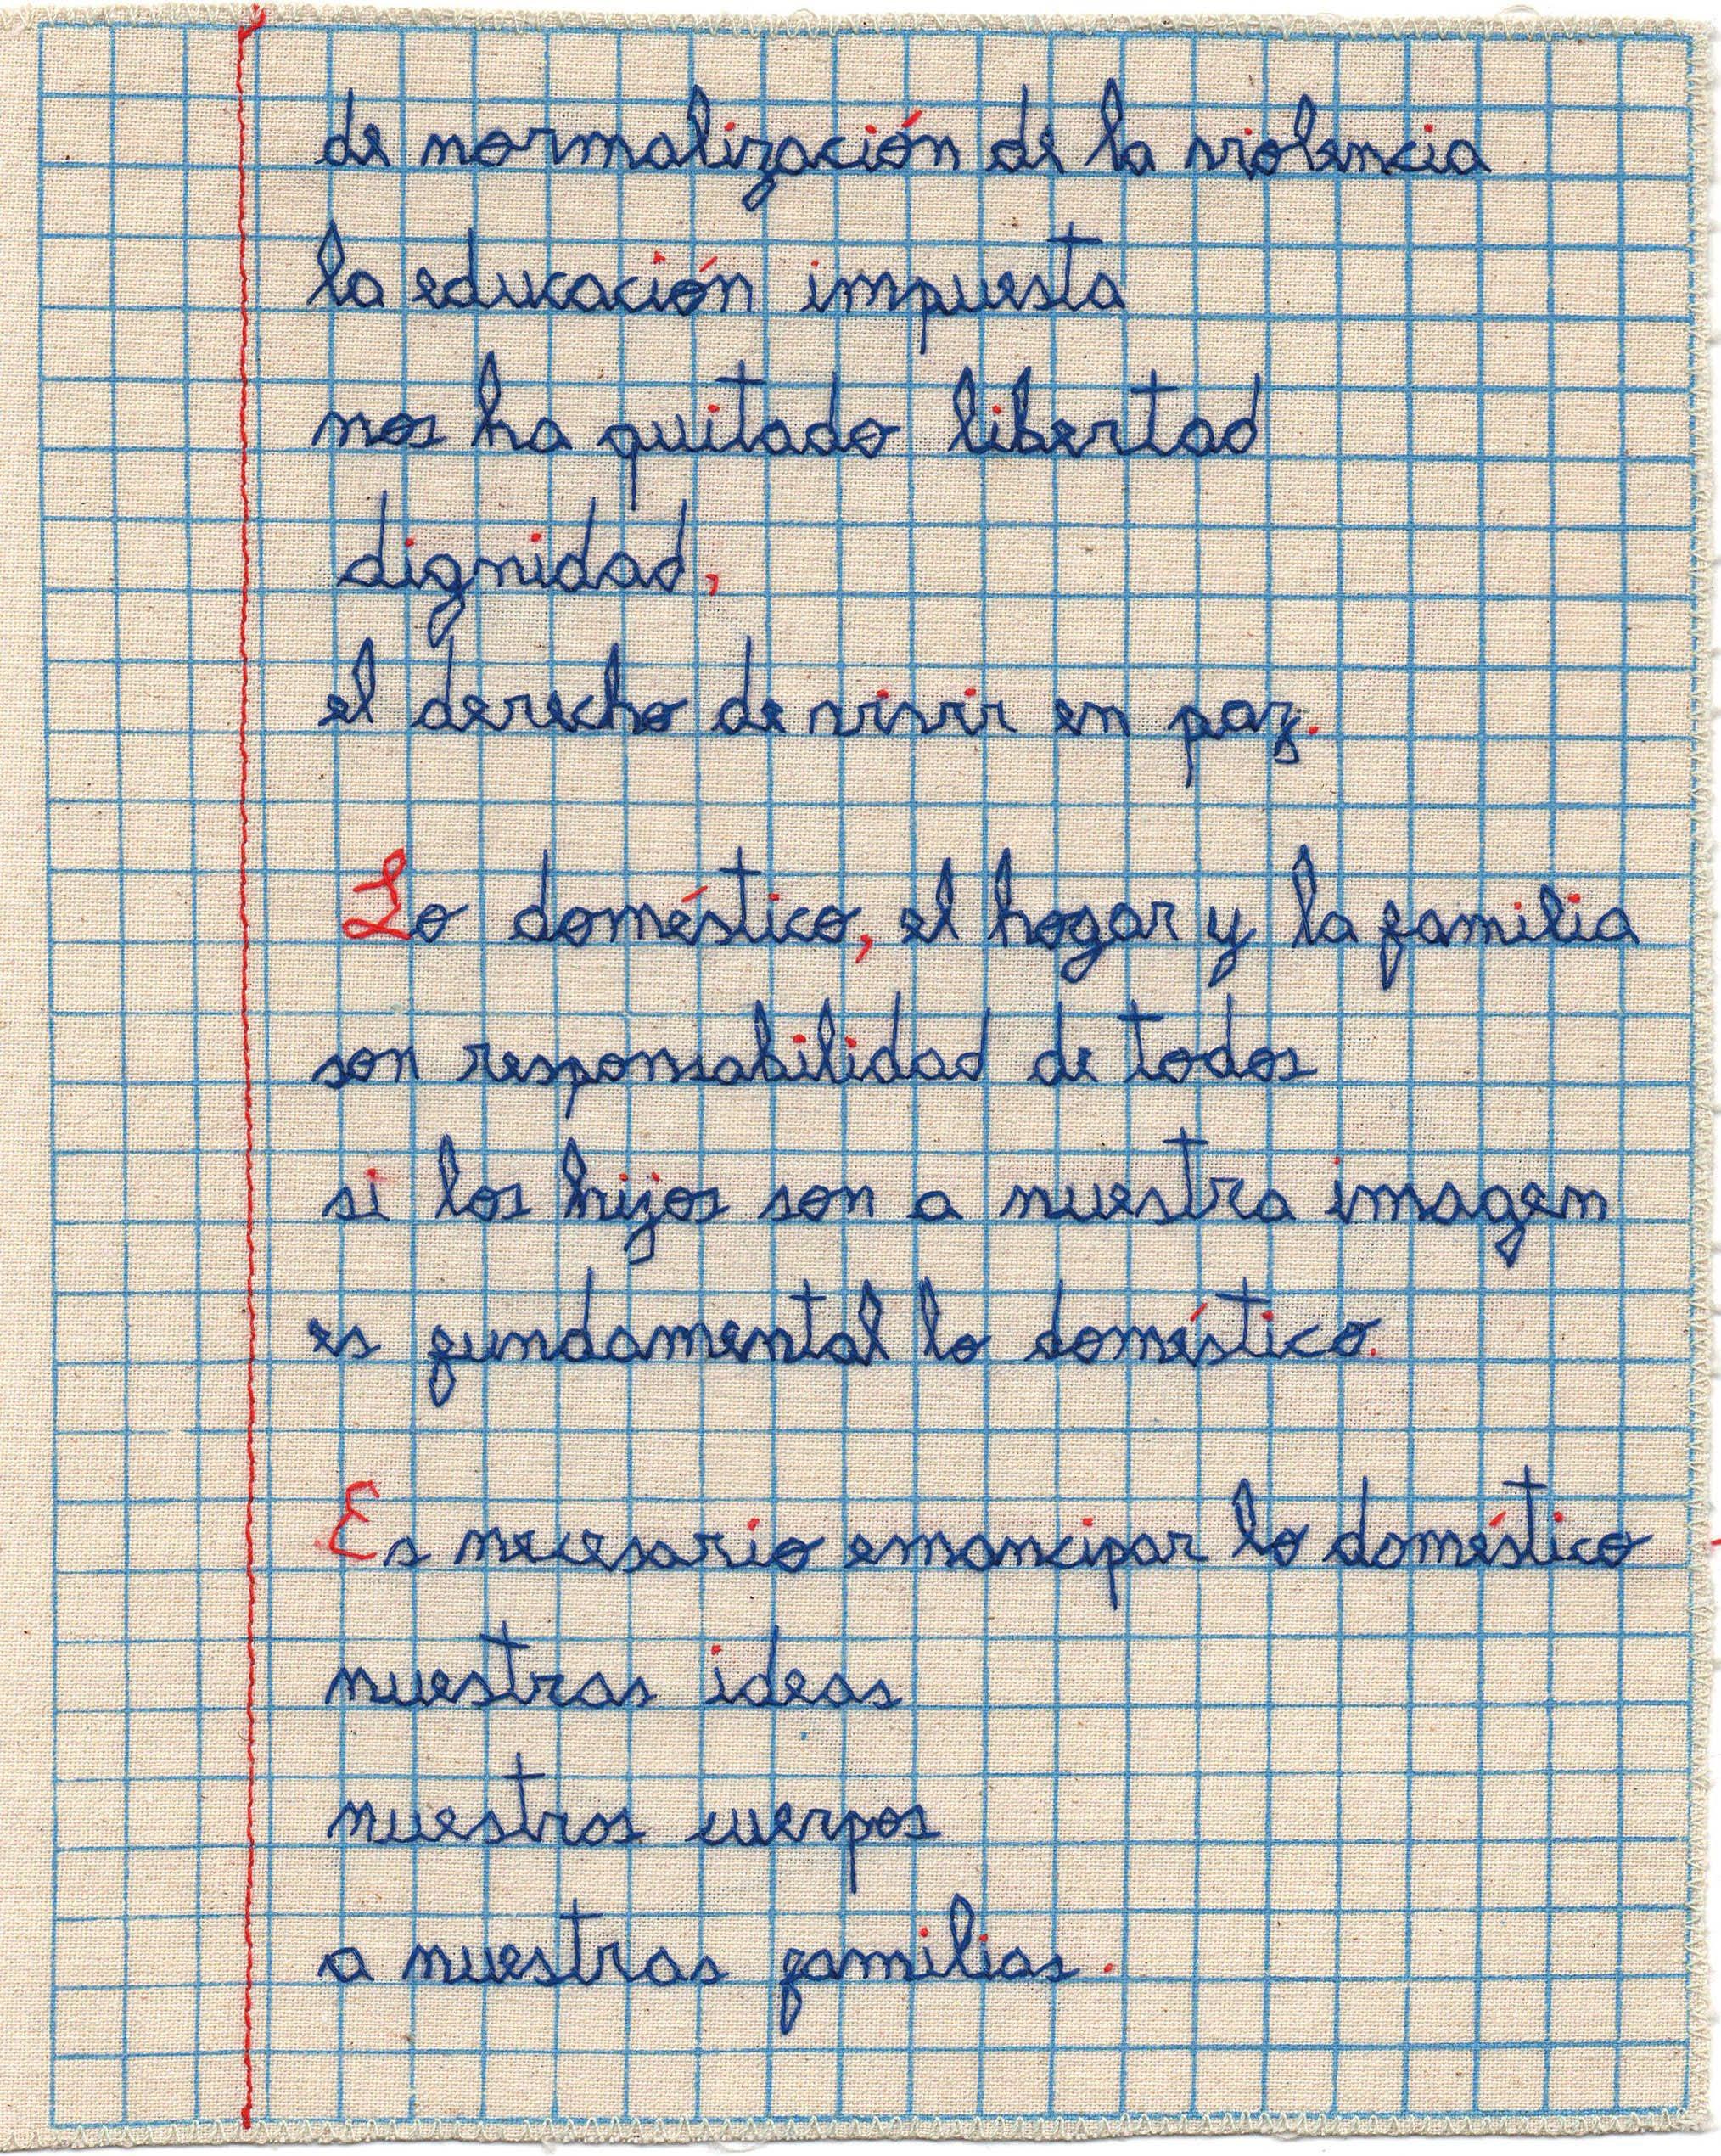 de normalización de la violencia
la educación impuesta
nos ha quitado libertad
dignidad,
el derecho de vivir en paz.
Lo doméstico, el hogar y la familia
son responsabilidad de todos
si los hijos son a nuestra imagen
es fundamental lo doméstico.
Es necesario emancipar lo doméstico
nuestras ideas
nuestros cuerpos
a nuestras familias.